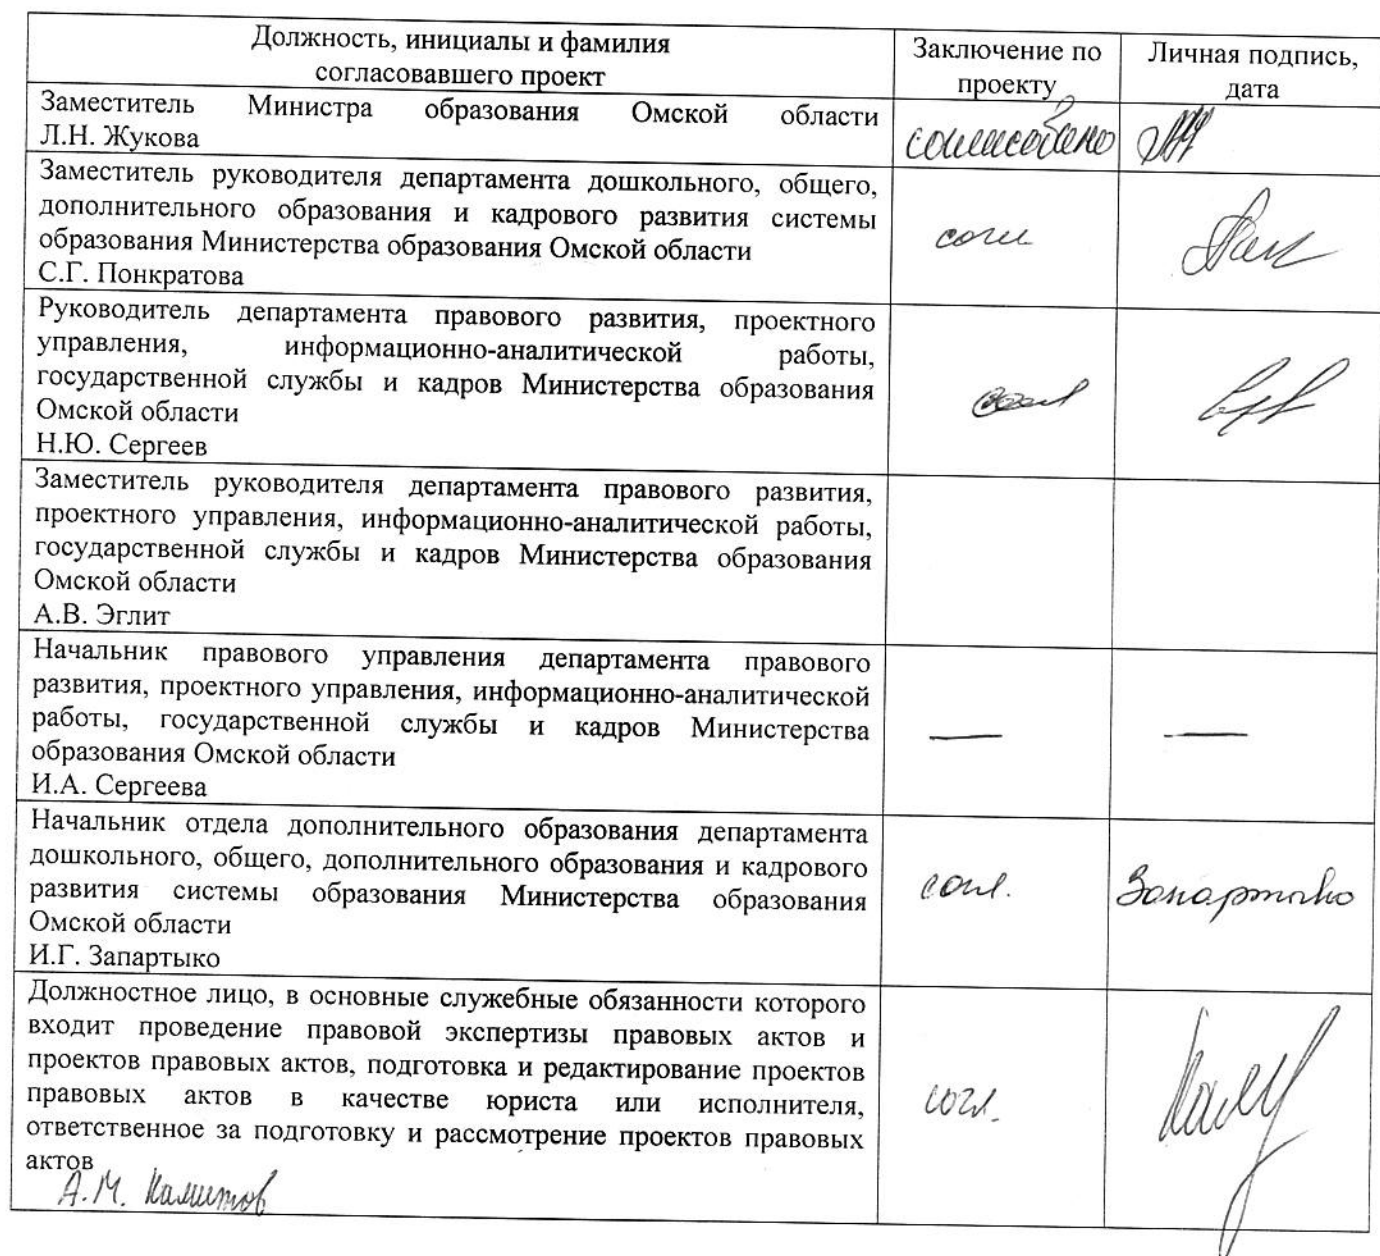 Должность, инициалы и фамилия
согласовавшего проект
Заключение по
проекту
Личная подпись,
дата
Заместитель Министра образования Омской области
Л.Н. Жукова
согласовано
Заместитель руководителя департамента дошкольного, общего,
дополнительного образования и кадрового развития системы
образования Министерства образования Омской области
С.Г. Понкратова
согл
Руководитель департамента правового развития, проектного
управления, информационно-аналитической работы,
государственной службы и кадров Министерства образования
Омской области
Н.Ю. Сергеев
согл
Заместитель руководителя департамента правового развития,
проектного управления, информационно-аналитической работы,
государственной службы и кадров Министерства образования
Омской области
А.В. Эглит
Начальник правового управления департамента правового
развития, проектного управления, информационно-аналитической
работы, государственной службы и кадров Министерства
образования Омской области
И.А. Сергеева
— —
Начальник отдела дополнительного образования департамента
дошкольного, общего, дополнительного образования и кадрового
развития системы образования Министерства образования
Омской области
И.Г. Запартыко
согл.
Запартыко
Должностное лицо, в основные служебные обязанности которого
входит проведение правовой экспертизы правовых актов и
проектов правовых актов, подготовка и редактирование проектов
правовых актов в качестве юриста или исполнителя,
ответственное за подготовку и рассмотрение проектов правовых
актов
А.М.
согл.